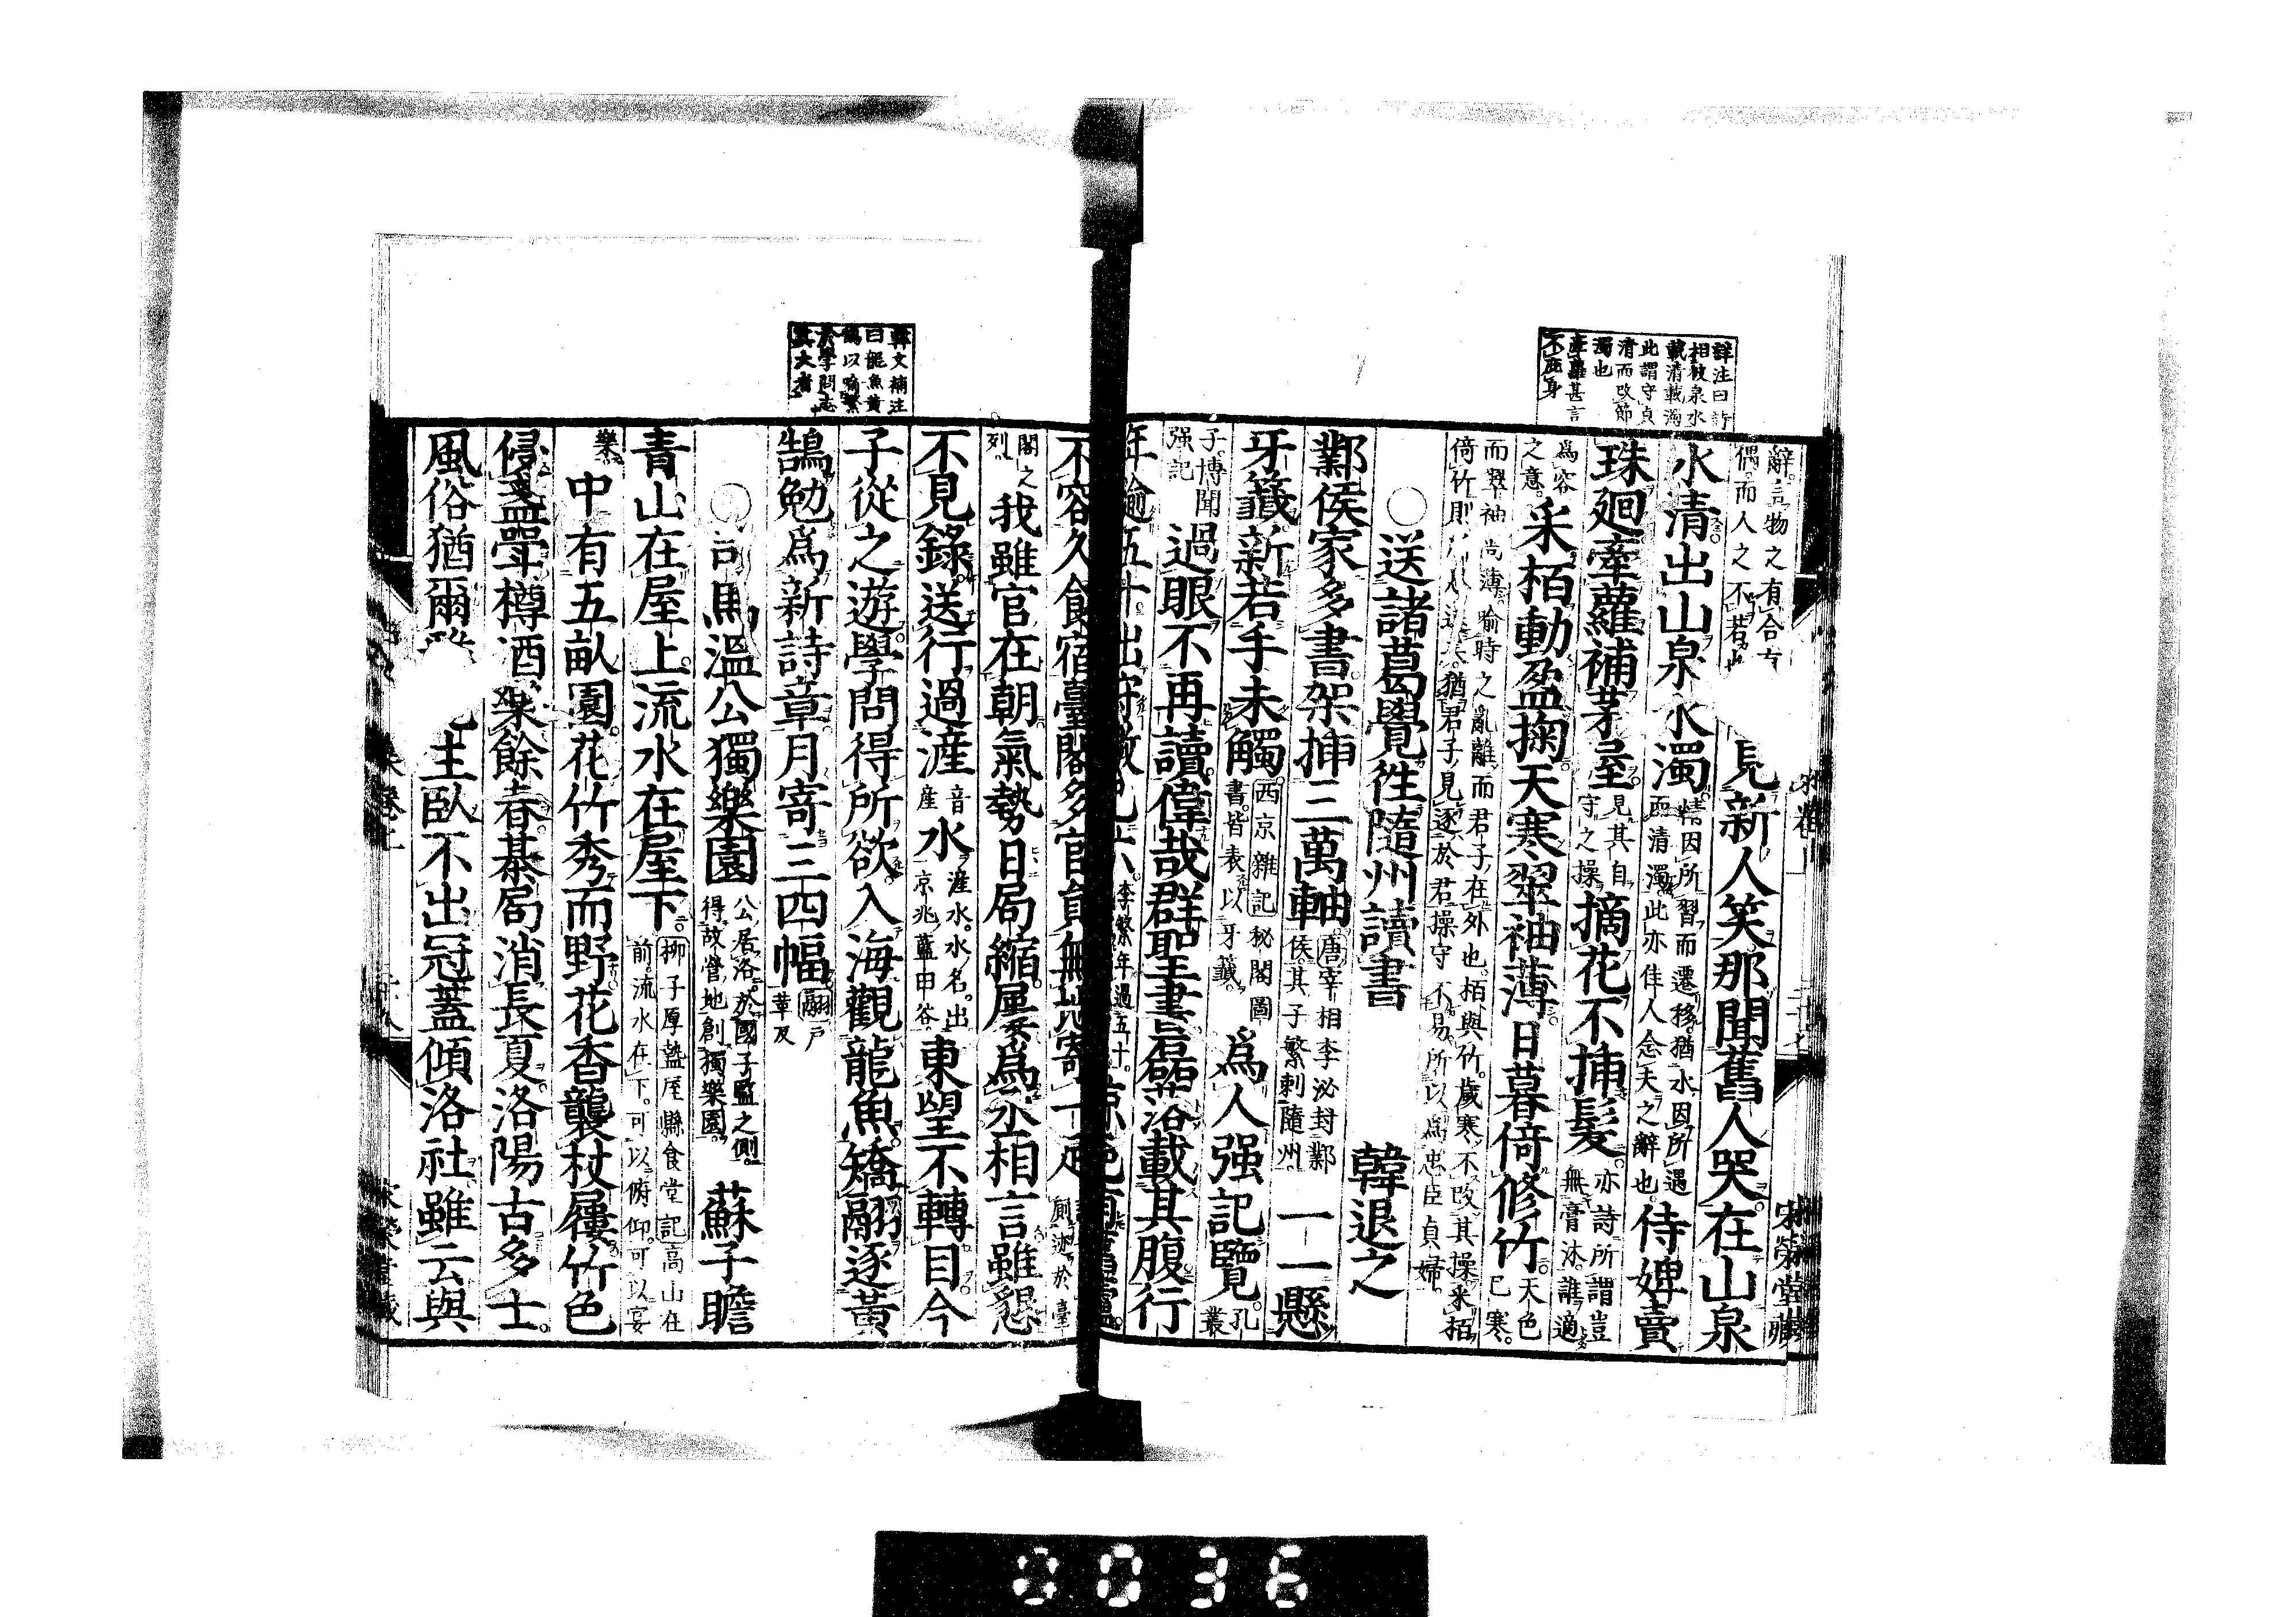 詳注曰詩
相彼泉水
載清載濁
此謂守貞
清而改節
濁也
牽蘿甚言
不庇身
辭言物之有合
偶而人之不若
見新人笑那聞舊人哭在山泉
水清出山泉水濁
情因所習而遷移猶水因所遇
而清濁此亦佳人念夫之辭也
侍婢賣
珠廻牽蘿補茅屋
見其自
守之操
摘花不插髮
亦詩所謂豈
無膏沐誰適
爲容
之意
采栢動盈掬天寒翠袖薄日暮倚修竹
天色
已寒
而翠袖尚薄喻時之亂離而君子在外也栢與竹歲寒不改其操采栢
倚竹則 猶君子見逐於君操守不易所以爲忠臣貞婦
○送諸葛覺徃隨州讀書 韓退之
鄴侯家多書架插三萬軸
唐宰相李泌封鄴
侯其子繁刺隨州
一一懸
牙籤新若手未觸
西京雜記秘閣圖
書皆表以牙籤
爲人强記覽
孔叢
子博聞
强記
過眼不再讀偉哉群聖書磊落載其腹行
年逾五十出守
李繁年過五十
韓文補注
曰龍魚黃
鵠以喻繁
於學問志
其大者
不容久食宿臺閣多官員無地寄一足
廁迹於臺
閣之
列
我雖官在朝氣勢日局縮屢爲丞相言雖懇
不見錄送行過滻
音
産
水
滻水水名出
京兆藍田谷
東望不轉目今
子從之遊學問得所欲入海觀龍魚矯翮逐黃
鵠勉爲新詩章月寄三四幅
翮戸
革反
○司馬溫公獨樂園
公居洛於國子監之側
得故營地創獨樂園
蘇子瞻
青山在屋上流水在屋下
柳子厚盩厔縣食堂記高山在
前流水在下可以俯仰可以宴
樂
中有五畝園花竹秀而野花香襲杖屨竹色
侵盞斝樽酒樂餘春棊局消長夏洛陽古多士
風俗猶爾 主臥不出冠蓋傾洛社雖云與
0036